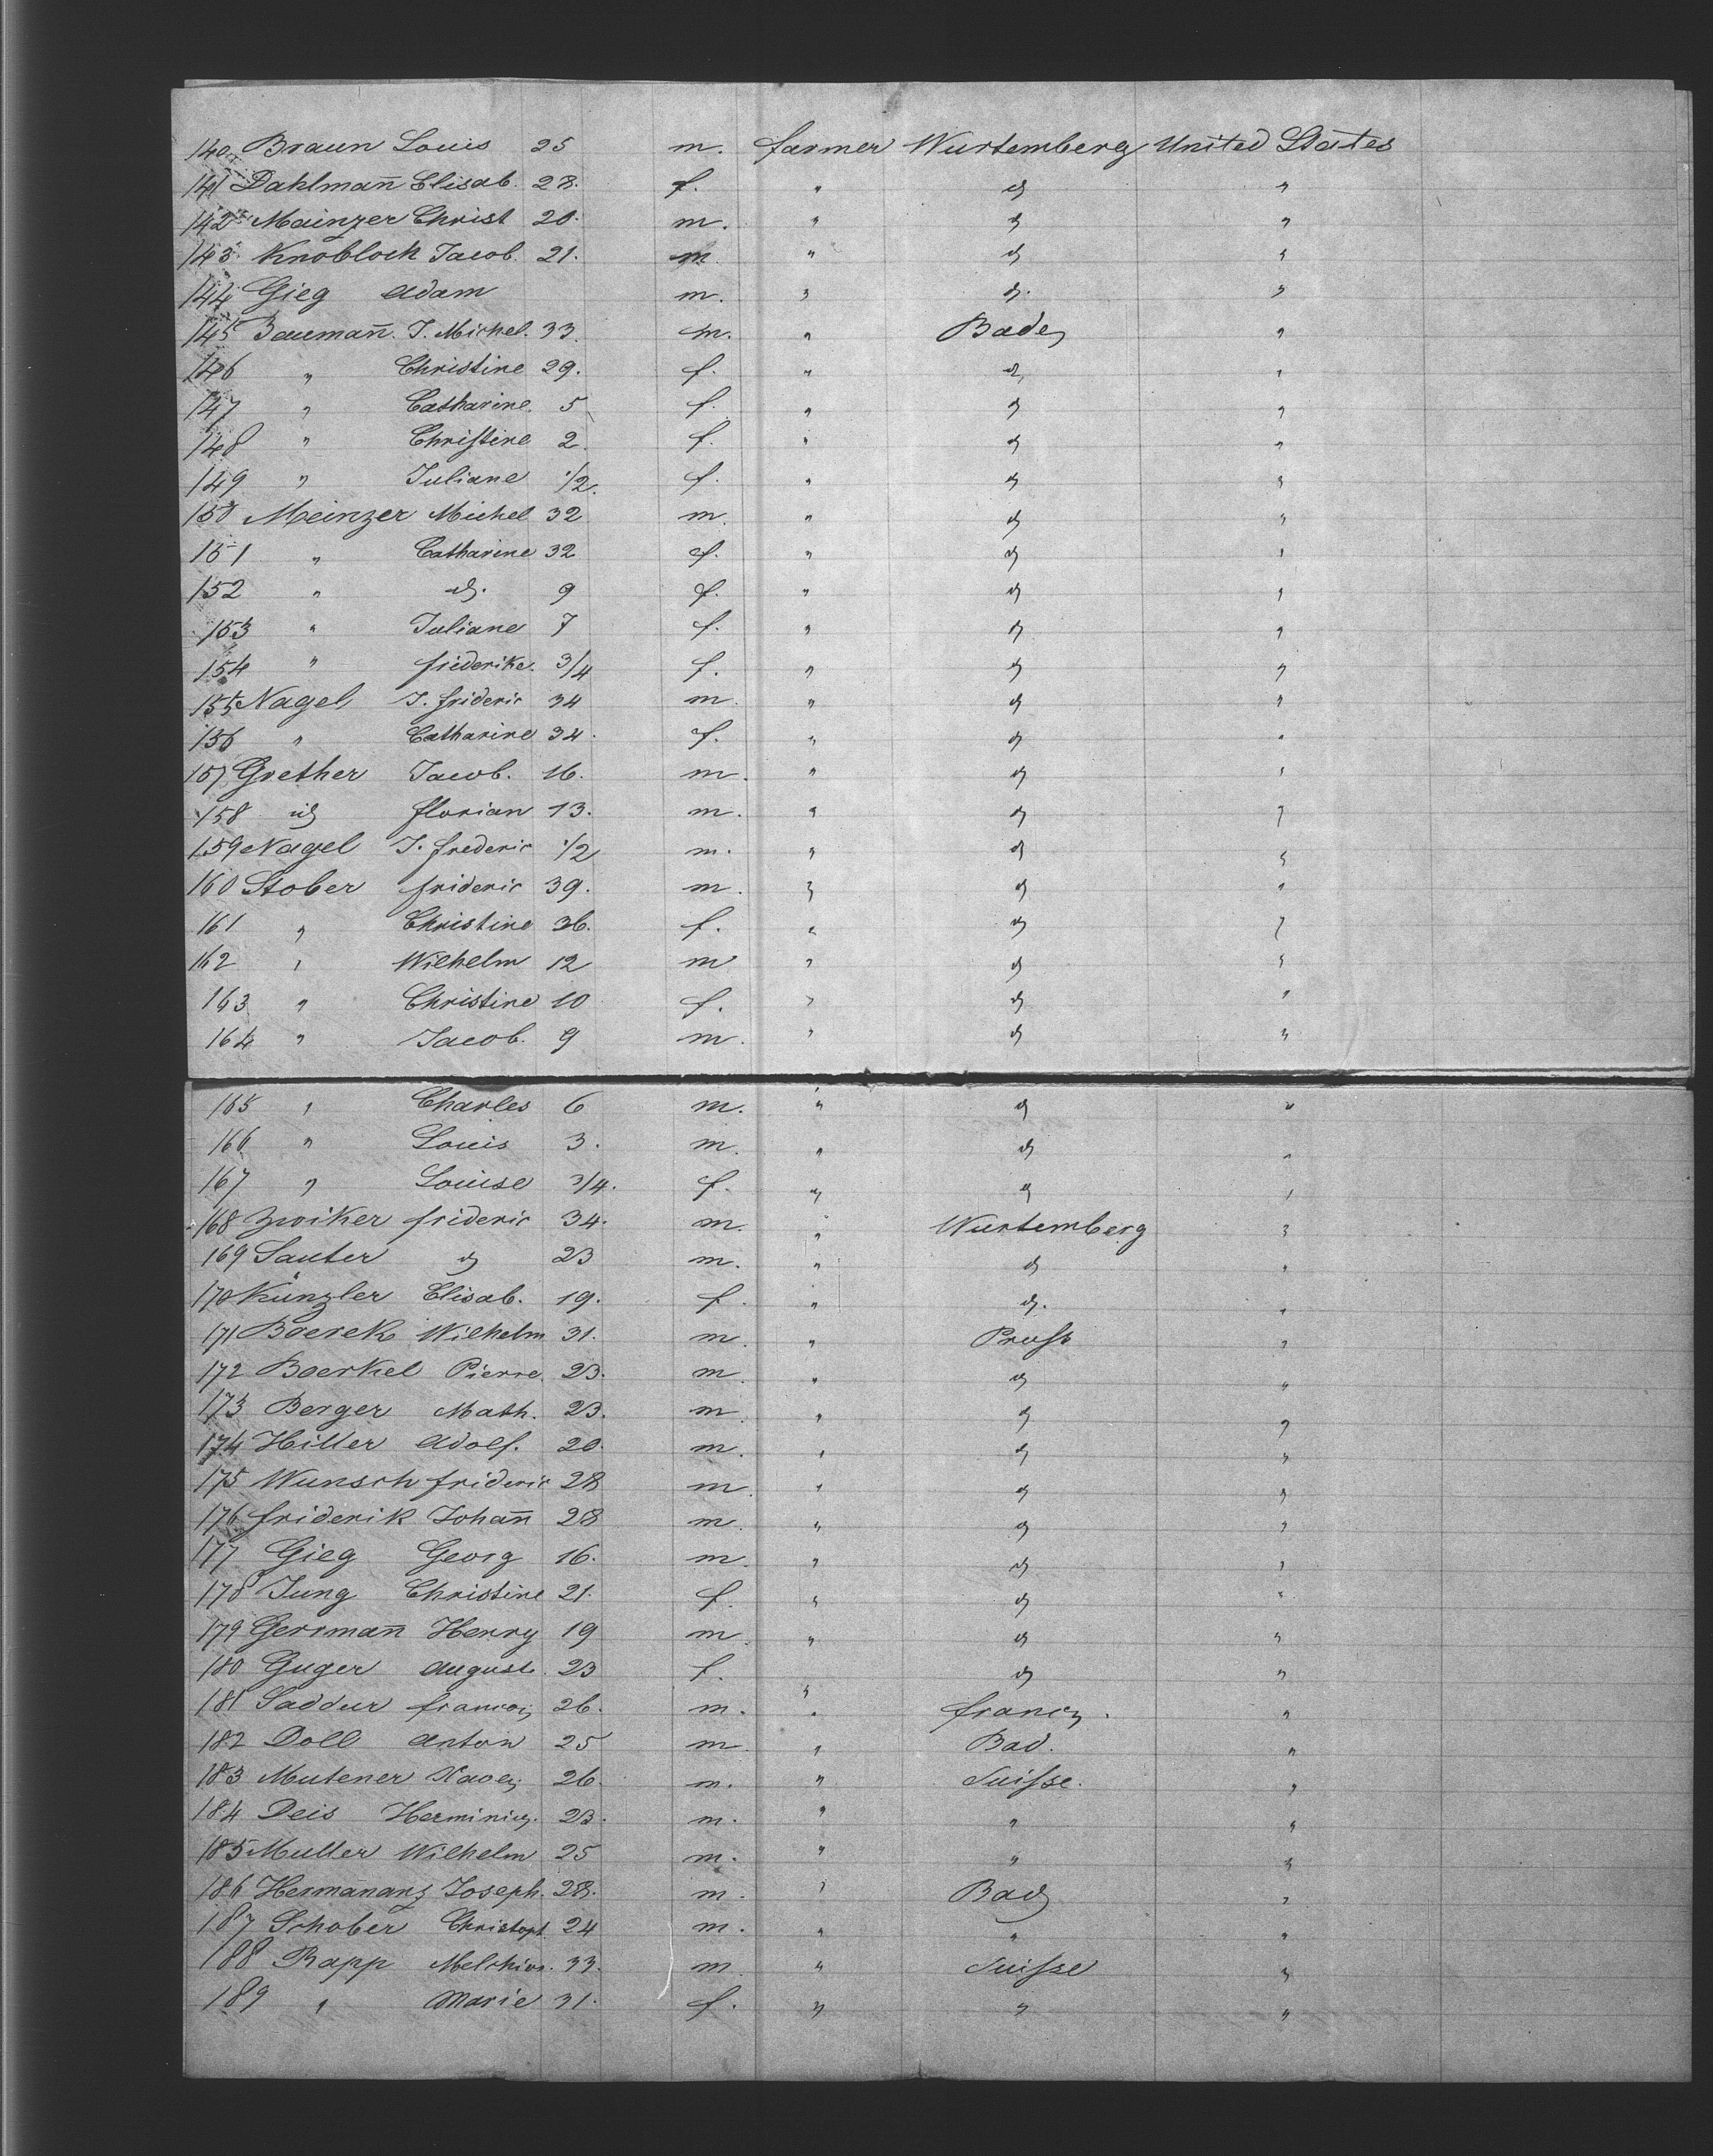 140 Braun Louis 25 m. farmer Wurtemberg United States
141 Dahlmañ Elisab. 28. f. " id "
142 Mainzer Christ 20. m. " id "
143 Knobloch Jacob. 21. m. " id "
144 Gieg Adam m. " id. "
145 Baumañ. J. Michel. 33. m. " Bade "
146 " Christine 29. f. " id "
147 " Catharine. 5 f. " id "
148 " Christine 2. f. " id "
149 " Juliane 1/2. f. " id "
150 Meinzer Michel 32 m. " id "
151 " Catharine 32 f. " id "
152 " id. 9 f. " id "
153 " Juliane 7 f. " id "
154 " friederike. 3/4 f. " id "
155 Nagel J. frideric 34 m. " id "
156 " Catharine 34. f. " id "
157 Grether Jacob. 16. m. " id "
158 id florian 13. m. " id "
159 Nagel J. frederic 1/2 m. " id "
160 Stober frideric 39. m. " id "
161 " Christine 36. f. " id "
162 " Wilhelm 12 m " id "
163 " Christine 10 f. " id "
164 " Jacob. 9 m. " id "
165 " Charles 6 m. " id "
166 " Louis 3. m. " id "
167 " Louise 3/4. f. " id "
168 Zwiker frideric 34. m. " Wurtemberg "
169 Sauter id 23 m. " id "
170 Künzler Elisab. 19. f. " id. "
171 Boerck Wilhelm 31. m. " Pruss "
172 Boerkel Pierre. 23. m. " id "
173 Berger Math. 23. m. " id "
174 Hiller Adolf. 20. m. " id "
175 Wunsch frideric 28 m. " id "
176 friderik Johañ 28 m. " id "
177 Gieg Georg 16. m. " id "
178 Jung Christine 21. f. " id "
179 Germañ Henry 19 m. " id "
180 Guger August. 23 f. " id "
181 Saddur francois 26. m. " . "
182 Doll Anton 25 m. " Bad. "
183 Mutener 26. m. " Suisse. "
184 Deis 23. m. " " "
185 Muller Wilhelm 25 m. " " "
186 Joseph. 28. m. " Bad "
187 Schober Christoph 24 m. " " "
188 Rapp Melchior. 33. m. " Suisse "
189 " Marie 31. f. " " "